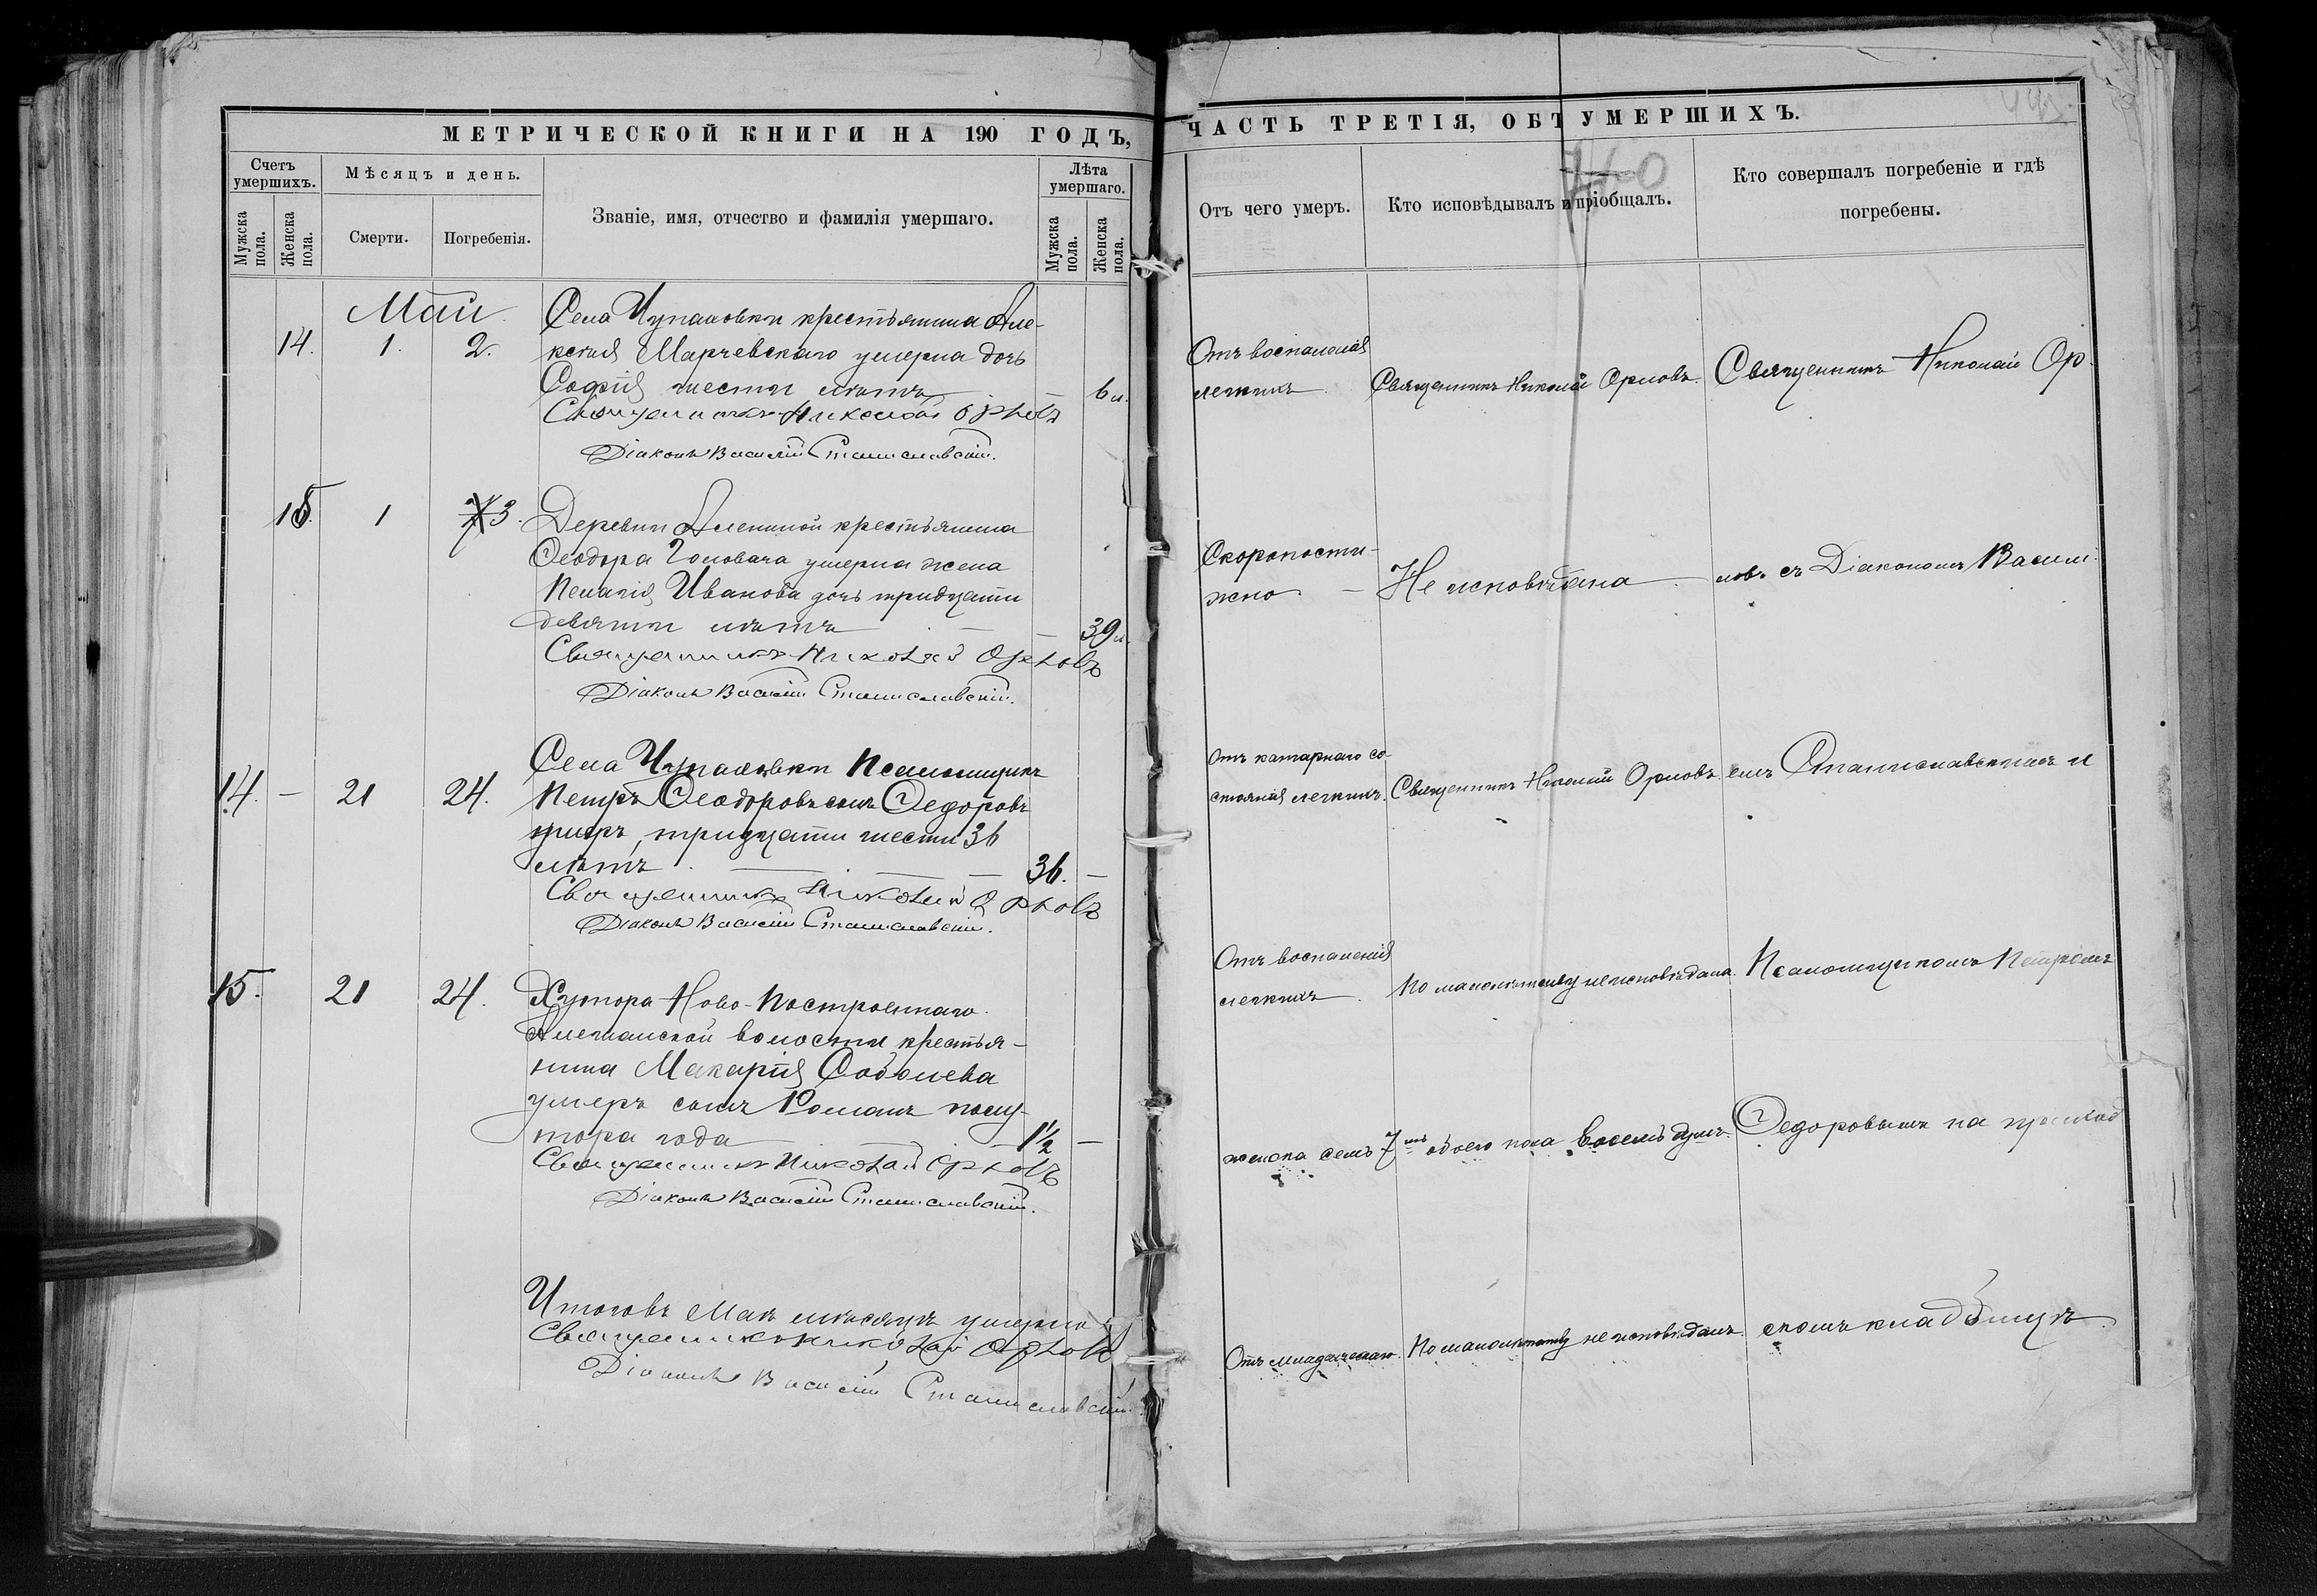 МЕТРИЧЕСКОЙ КНИГИ НА 190 ГОДЪ,
Счетъ умершихъ.
Мужска пола.
Женска пола.
Мѣсяцъ и день.
Смерти.
Погребенія.
Званіе, имя, отчество и фамилія умершаго.
Лѣта умершаго.
Мужска пола.
Женска пола.
Май
14. 1. 2.
Села Чупаховки крестьянина Але-
ксѣя Марчевскаго умерла дочь
Софія шести лѣтъ
6 л.
Священникъ Николай Орловъ
Діаконъ Василій Станиславскій.
15. 1 3.
Деревни Алениной крестьянина
Ѳеодора Головача умерла жена
Пелагія Иванова дочь тридцати
девяти лѣтъ
39 л.
Священникъ Николай Орловъ
Діаконъ Василій Станиславскій.
14. – 21 24.
Села Чупаховки Псаломщикъ
Петръ Ѳеодоровъ сынъ Ѳедоровъ
умеръ, тридцати шести 36
лѣтъ
36. –
Священникъ Николай Орловъ
Діаконъ Василій Станиславскій.
15. 21 24.
Хутора Ново-Построеннаго
волости крестья-
нина Макарія Соболева
умеръ сынъ Романъ полу-
тора года
1½ –
Священникъ Николай Орловъ
Діаконъ Василій Станиславскій.
Итого въ Маѣ мѣсяцѣ умерло
Священникъ Николай Орловъ
Діаконъ Василій Станиславскій.
ЧАСТЬ ТРЕТІЯ, ОБЪ УМЕРШИХЪ.
Отъ чего умеръ.
Кто исповѣдывалъ и пріобщалъ.
Кто совершалъ погребеніе и гдѣ
погребены.
Отъ воспаленія
легкихъ
Священникъ Николай Орловъ.
Священникъ Николай Ор-
Скоропости-
жно
Не исповѣдана
ловъ съ Діакономъ Васили-
Отъ катарнаго со-
стоянія легкихъ.
Священникъ Николай Орловъ
емъ Станиславскимъ и
Отъ воспаленія
легкихъ
По малолѣтству не исповѣдана.
Псаломщикомъ Петромъ
женска семь 7 обоего пола восемь душъ.
Ѳедоровымъ на приход
Отъ младенческаго.
По малолѣтству не исповѣданъ.
скомъ кладбищѣ.